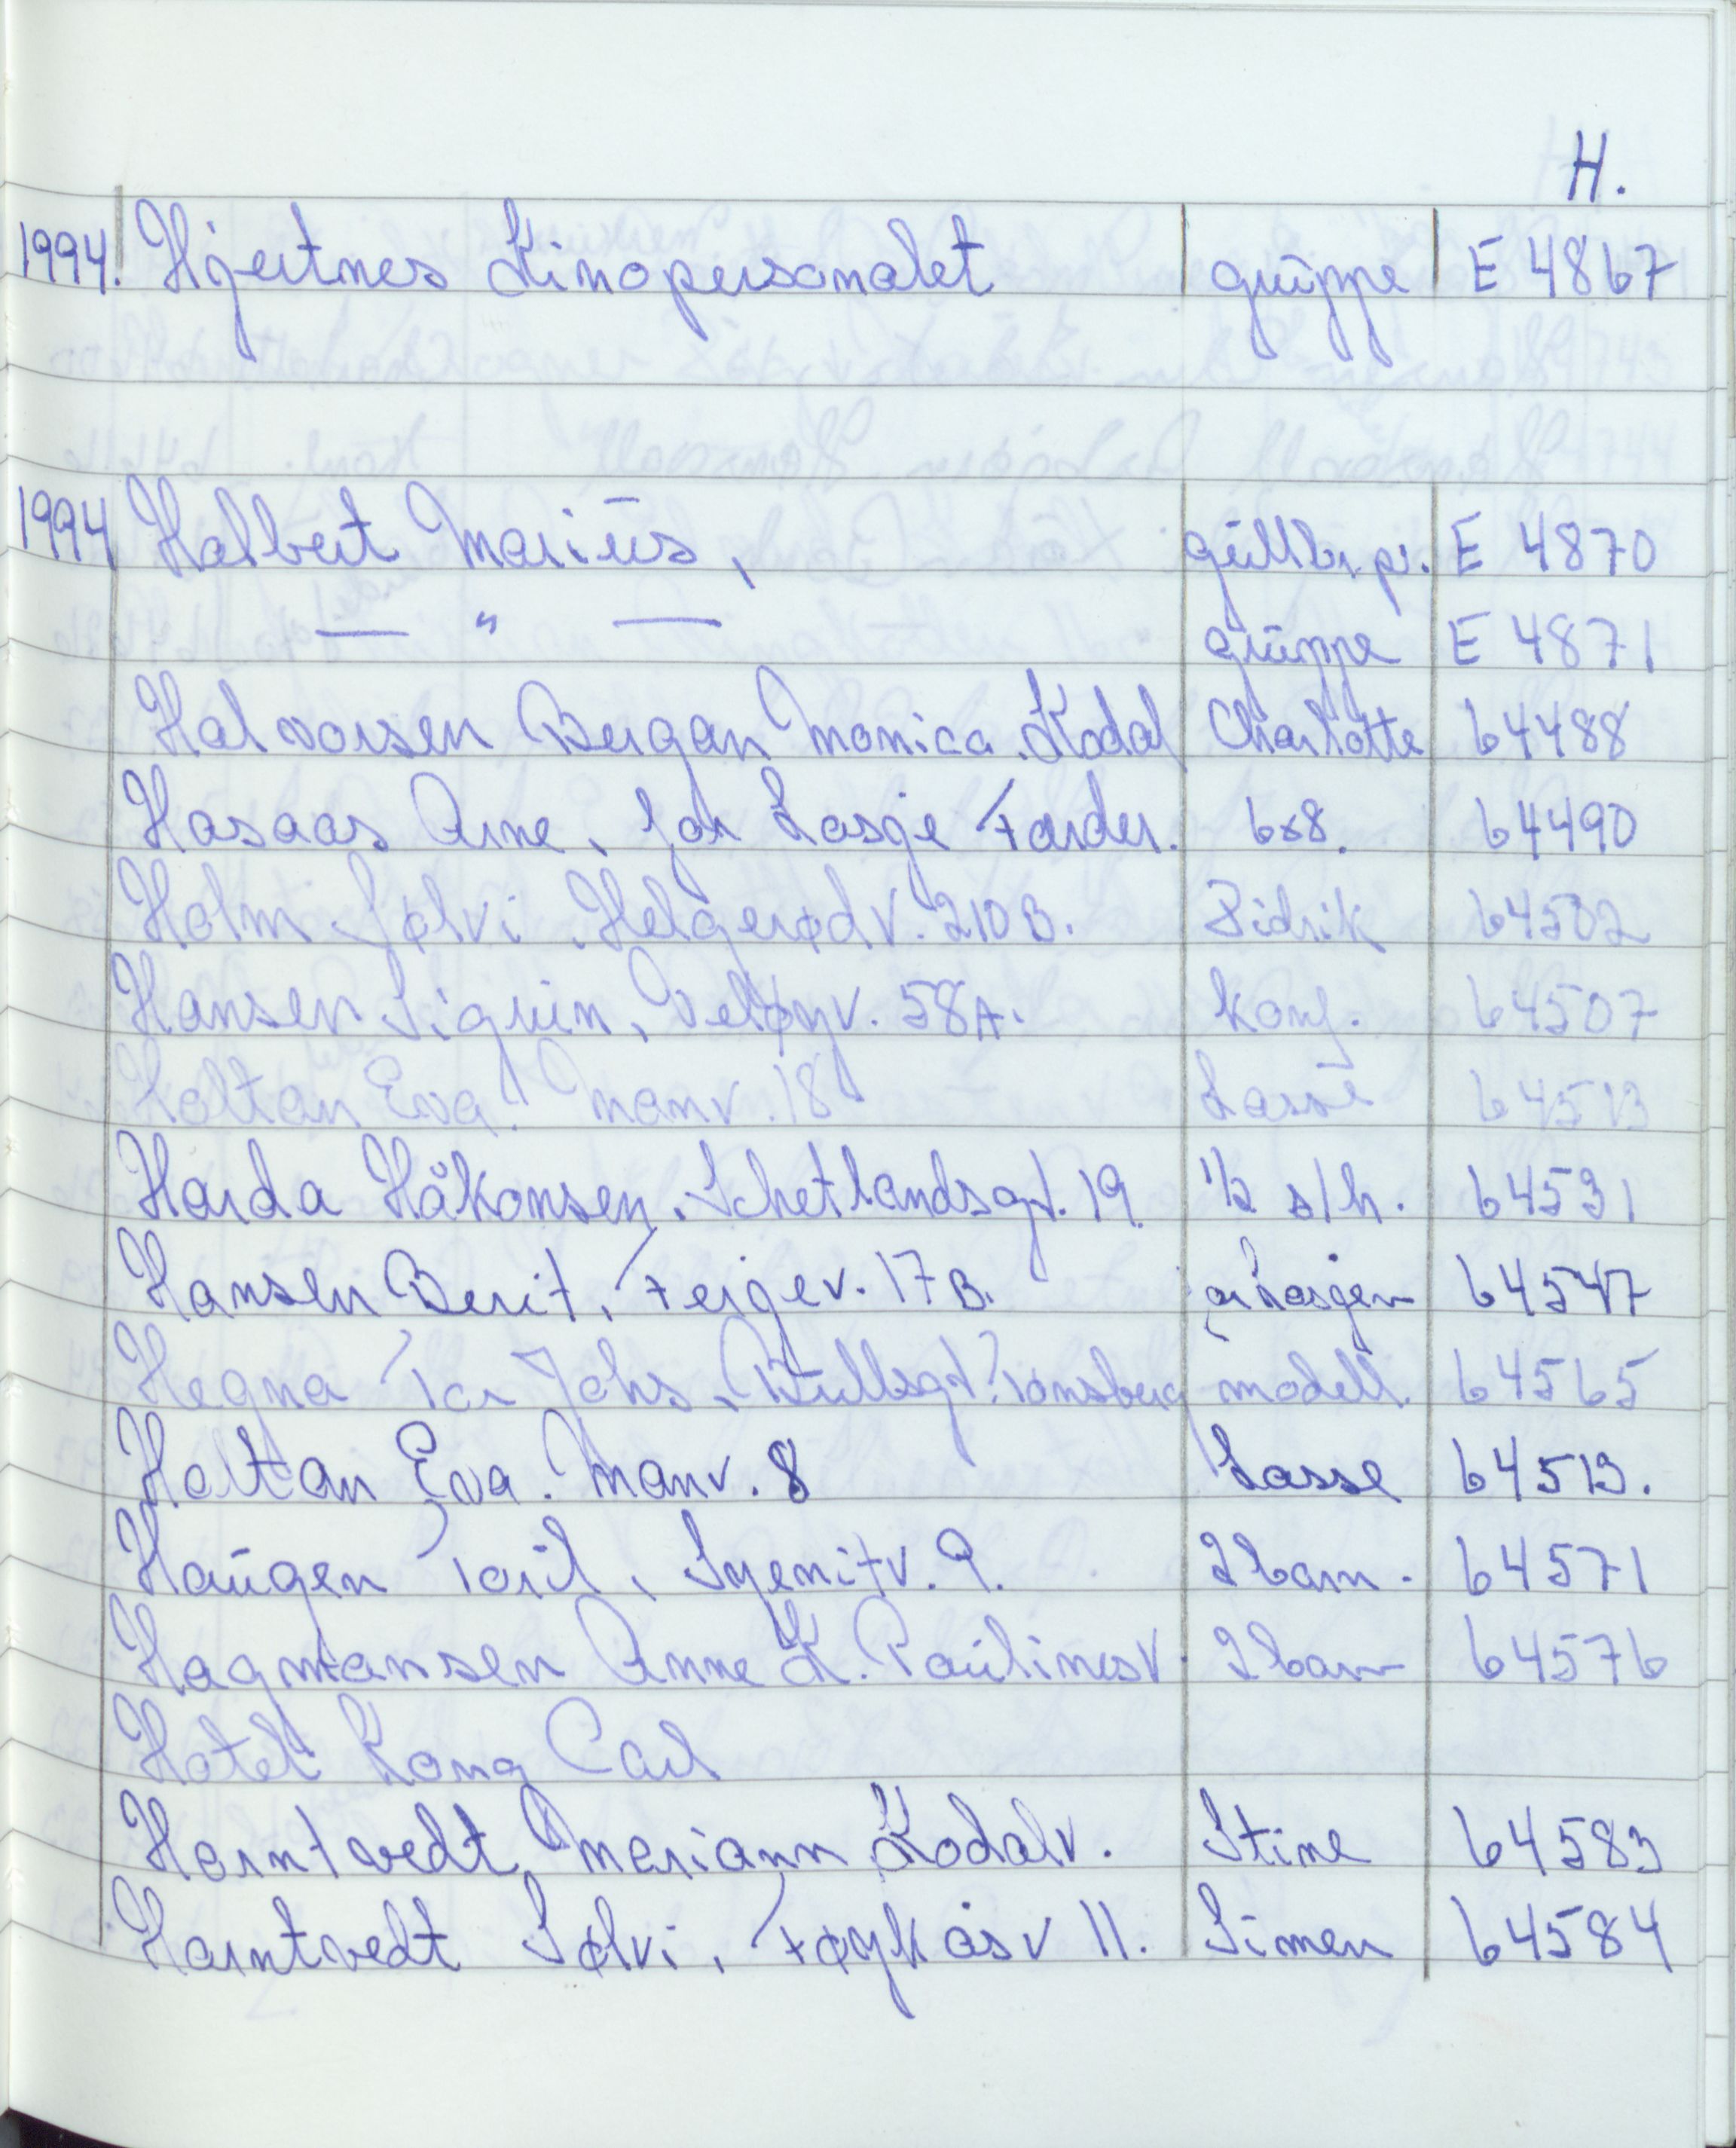 H.
1994. Hjertnes Kinopersonalet gruppe E 4867
1994 Halbert Marius, gullbr.p. E 4870
— " — gruppe E 4871
Halvorsen Bergan Monica. Kodal Charlotte 64488
Hasaas Arne, for Losje Færder. 6x8. 64490
Holm Sølvi. Helgerødv. 210 B. Didrik 64502
Hansen Sigrun, Veløyv. 58A. konf. 64507
Holtan Eva. Manv. 18 Lasse 64513
Harda Håkonsen. Schetlandsgt. 19 1/2 s/h. 64531
Hansen Berit, Fergev. 17 B. 64547
Hegna Tor Johs, Bullsgt. Tønsberg modell. 64565
Holtan Eva. Manv. 8 Lasse 64513.
Haugen Toril, Syenitv. 9. 2 barn. 64571
Hagmansen Anne K. Paulinesv. 2 barn 64576
Hotel Kong Carl
Horntvedt Mariann Kodalv. Stine 64583
Horntvedt Sølvi, Føykåsv 11. Simen 64584